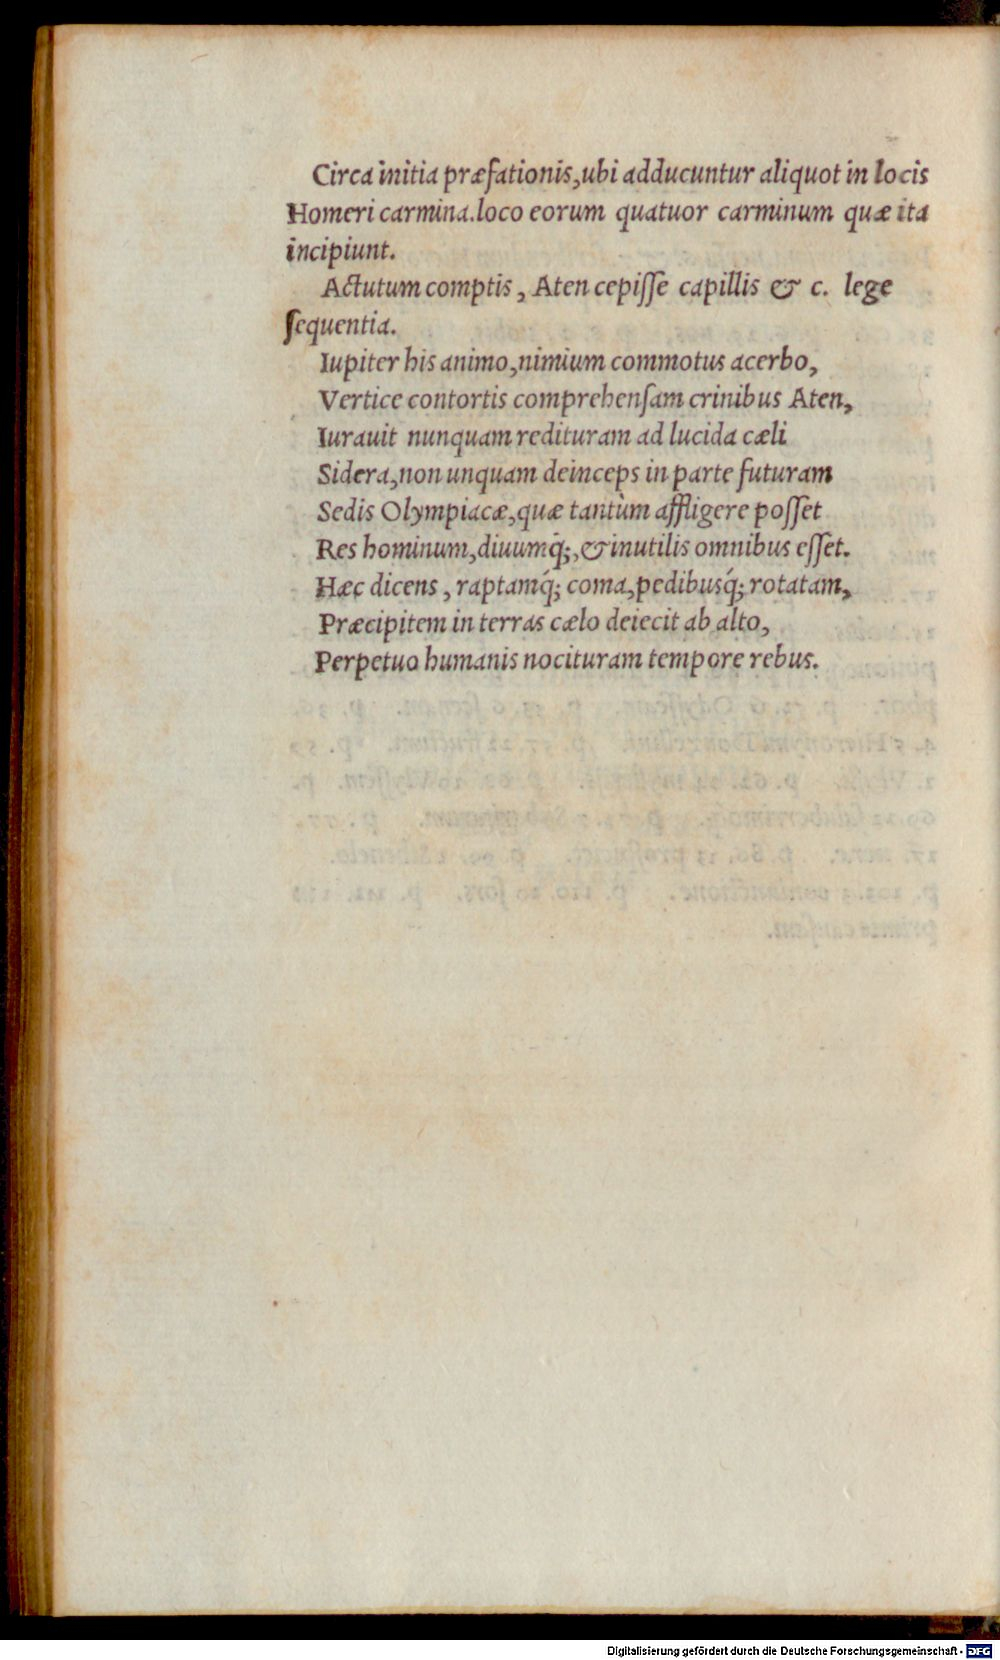 Circa initia præfationis,ubi adducuntur aliquot in locis
Homeri carmina.loco eorum quatuor carminum quæ ita
incipiunt.
Actutum comptis, Aten cepiſſe capillis & c. lege
ſequentia.
Iupiter his animo,nimium commotus acerbo,
Vertice contortis comprehenſam crinibus Aten,
Iurauit nunquam redituram ad lucida cæli
Sidera,non unquam deinceps in parte futuram
Sedis Olympiacæ,quæ tantùm affligere poſſet
Res hominum,diuumq́;,&inutilis omnibus eſſet.
Hæc dicens, raptamq́; coma,pedibusq́; rotatam,
Præcipitem in terras cælo deiecit ab alto,
Perpetuo humanis nocituram tempore rebus.
Digitalisierung gefördert durch die Deutsche Forschungsgemeinschaft - DFG